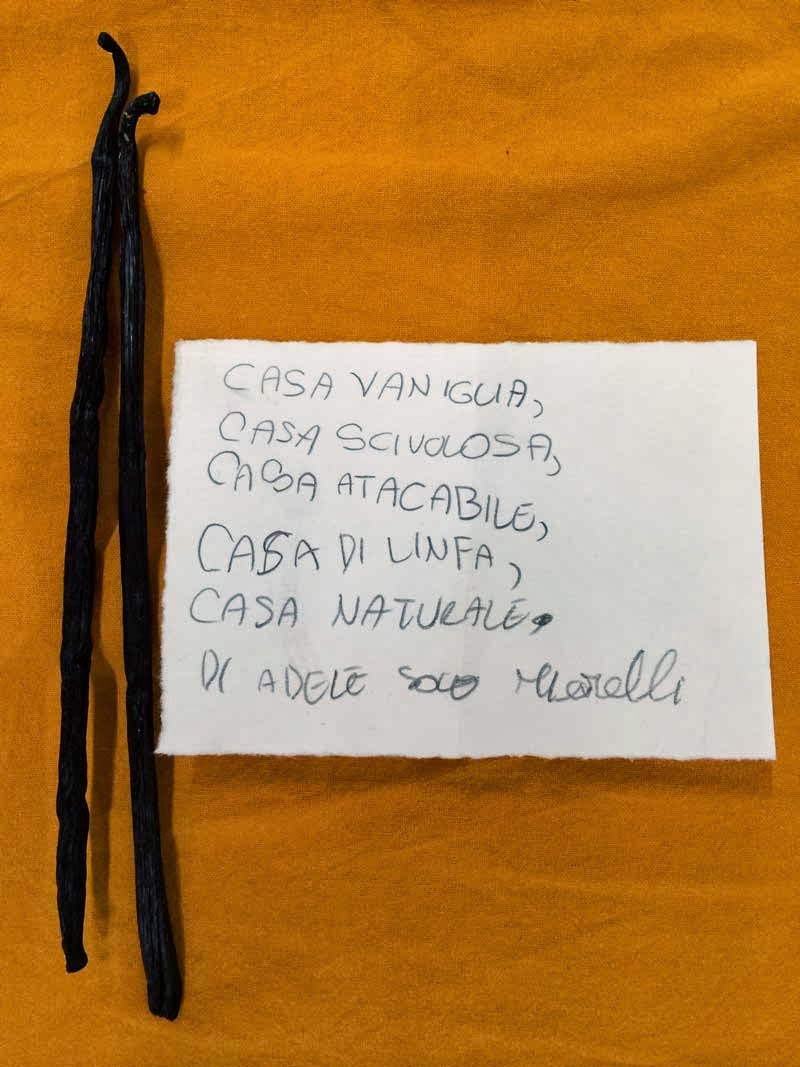 CASA VANIGLIA,
CASA SCIVOLOSA,
CASA ATACABILE,
CASA DI LINFA,
CASA NATURALE.
DI ADELE SOLO Morelli